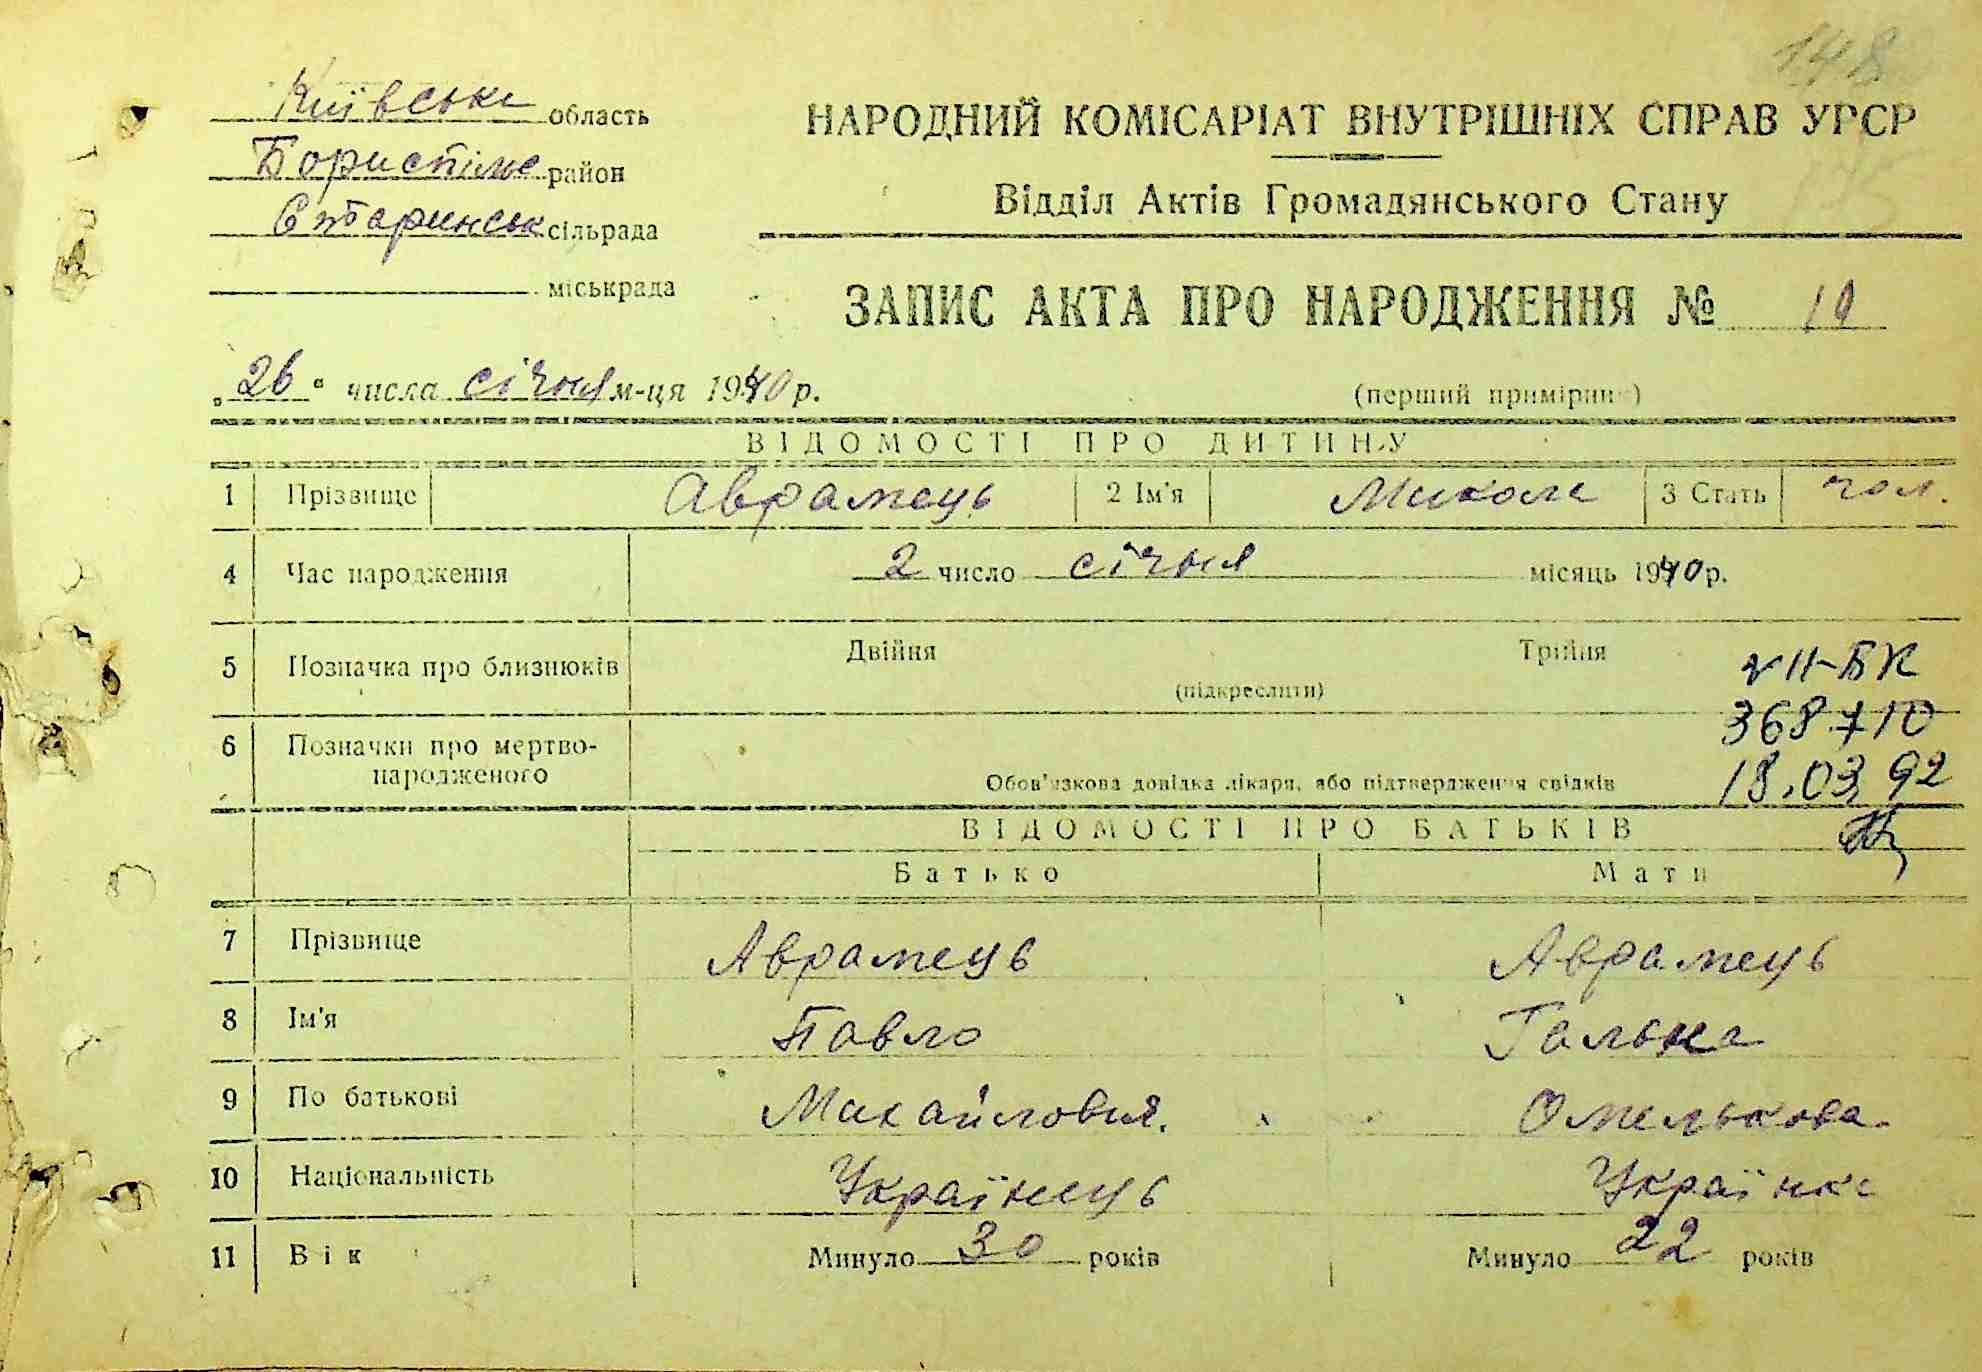 148
Київська область
НАРОДНИЙ КОМІСАРІАТ ВНУТРІШНІХ СПРАВ УРСР
Бориспільс район
175
Відділ Актів Громадянського Стану
Старинськ сільрада
міськрада
ЗАПИС АКТА ПРО НАРОДЖЕННЯ № 19
„26" числа січня м-ця 1940 р.
(перший примірник)
ВІДОМОСТІ ПРО ДИТИНУ
1 Прізвище Аврамець 2 Ім'я Микола 3 Стать чол.
4 Час народження 2 число січня місяць 1940 р.
5 Позначка про близнюків Двійня Трійня
(підкреслити)
VII-БК
368710
18.03.92
6 Позначки про мертво-
народженого
Обов'язкова довідка лікаря, або підтвердження свідків
ВІДОМОСТІ ПРО БАТЬКІВ
Батько Мати
7 Прізвище Аврамець Аврамець
8 Ім'я Павло Галька
9 По батькові Михайлович. Омелькова
10 Національність Українець Українка
11 Вік Минуло 30 років Минуло 22 років